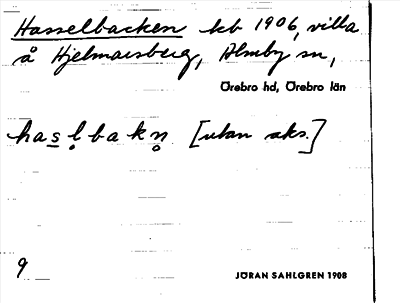 Hasselbacken kb 1906, villa
å Hjelmarsberg, Almby sn,
Örebro hd, Örebro län
haslbakn [utan aks.]
9
JÖRAN SAHLGREN 1908